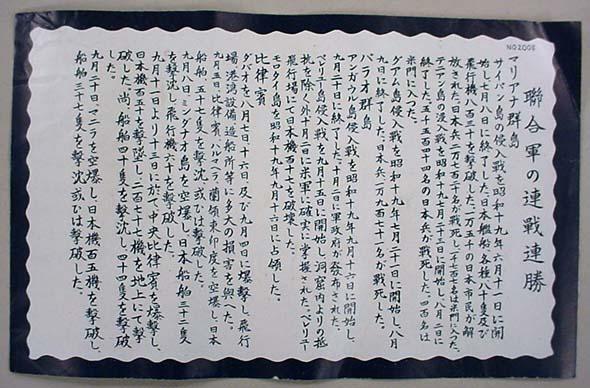 NO2008
聯合軍の連戰連勝
マリアナ群島
サイパン島の侵入戰を昭和十九年六月十一日に開
始し七月八日に終了した。日本艦船各種八十隻及び
飛行機八百三十を擊破した。一万五千の日本市民が解
放された。日本兵二万七百二十名が戰死し、二千七百七名は
テニアン島の侵入戰を昭和十九年七月二十三日に開始し、八月二日に
終了した。五千五百四十四名の日本兵が戰死した。四百名は
グアム島侵入戰を昭和十九年七月二十一日に開始し、八月
九日に終了した。日本兵一万九百七十一名が戰死した。
パラオ群島
アンガウル島侵入戰を昭和十九年九月十六日に開始し、
九月二十日に終了した。十月二日軍政府が發布された。
ペリリュー島侵入戰を九月十五日に開始し、洞窟内よりの抵
抗を除く外十月二日に米軍に確實に掌握された。ペレリュー
飛行場にて日本機百十七を破壞した。
モロタイ島を昭和十九年九月十六日に占領した。
比律賓
ダバオを八月七日、十六日及び九月四日に爆擊し、飛行
場、港灣設備、造船所等に多大の損害を與へた。
九月五日比律賓、ハルマヘラ、蘭領東印度を空爆し、日本
船舶五十七隻を擊沈或ひは擊破した。
九月八日、ミンダナオ島を空爆し、日本船舶三十二隻
を擊沈し、飛行機六十を擊破した。
九月十一日より十三日に於て中央比律賓を爆擊し、
日本機百五十を擊墜し、二百七十七機を地上にて擊
破した。尚、船舶四十隻を擊沈し、四十四隻を擊破
した。
九月二十日、マニラを空爆し、日本機百五機を擊破し、
船舶三十七隻を擊沈或ひは擊破した。